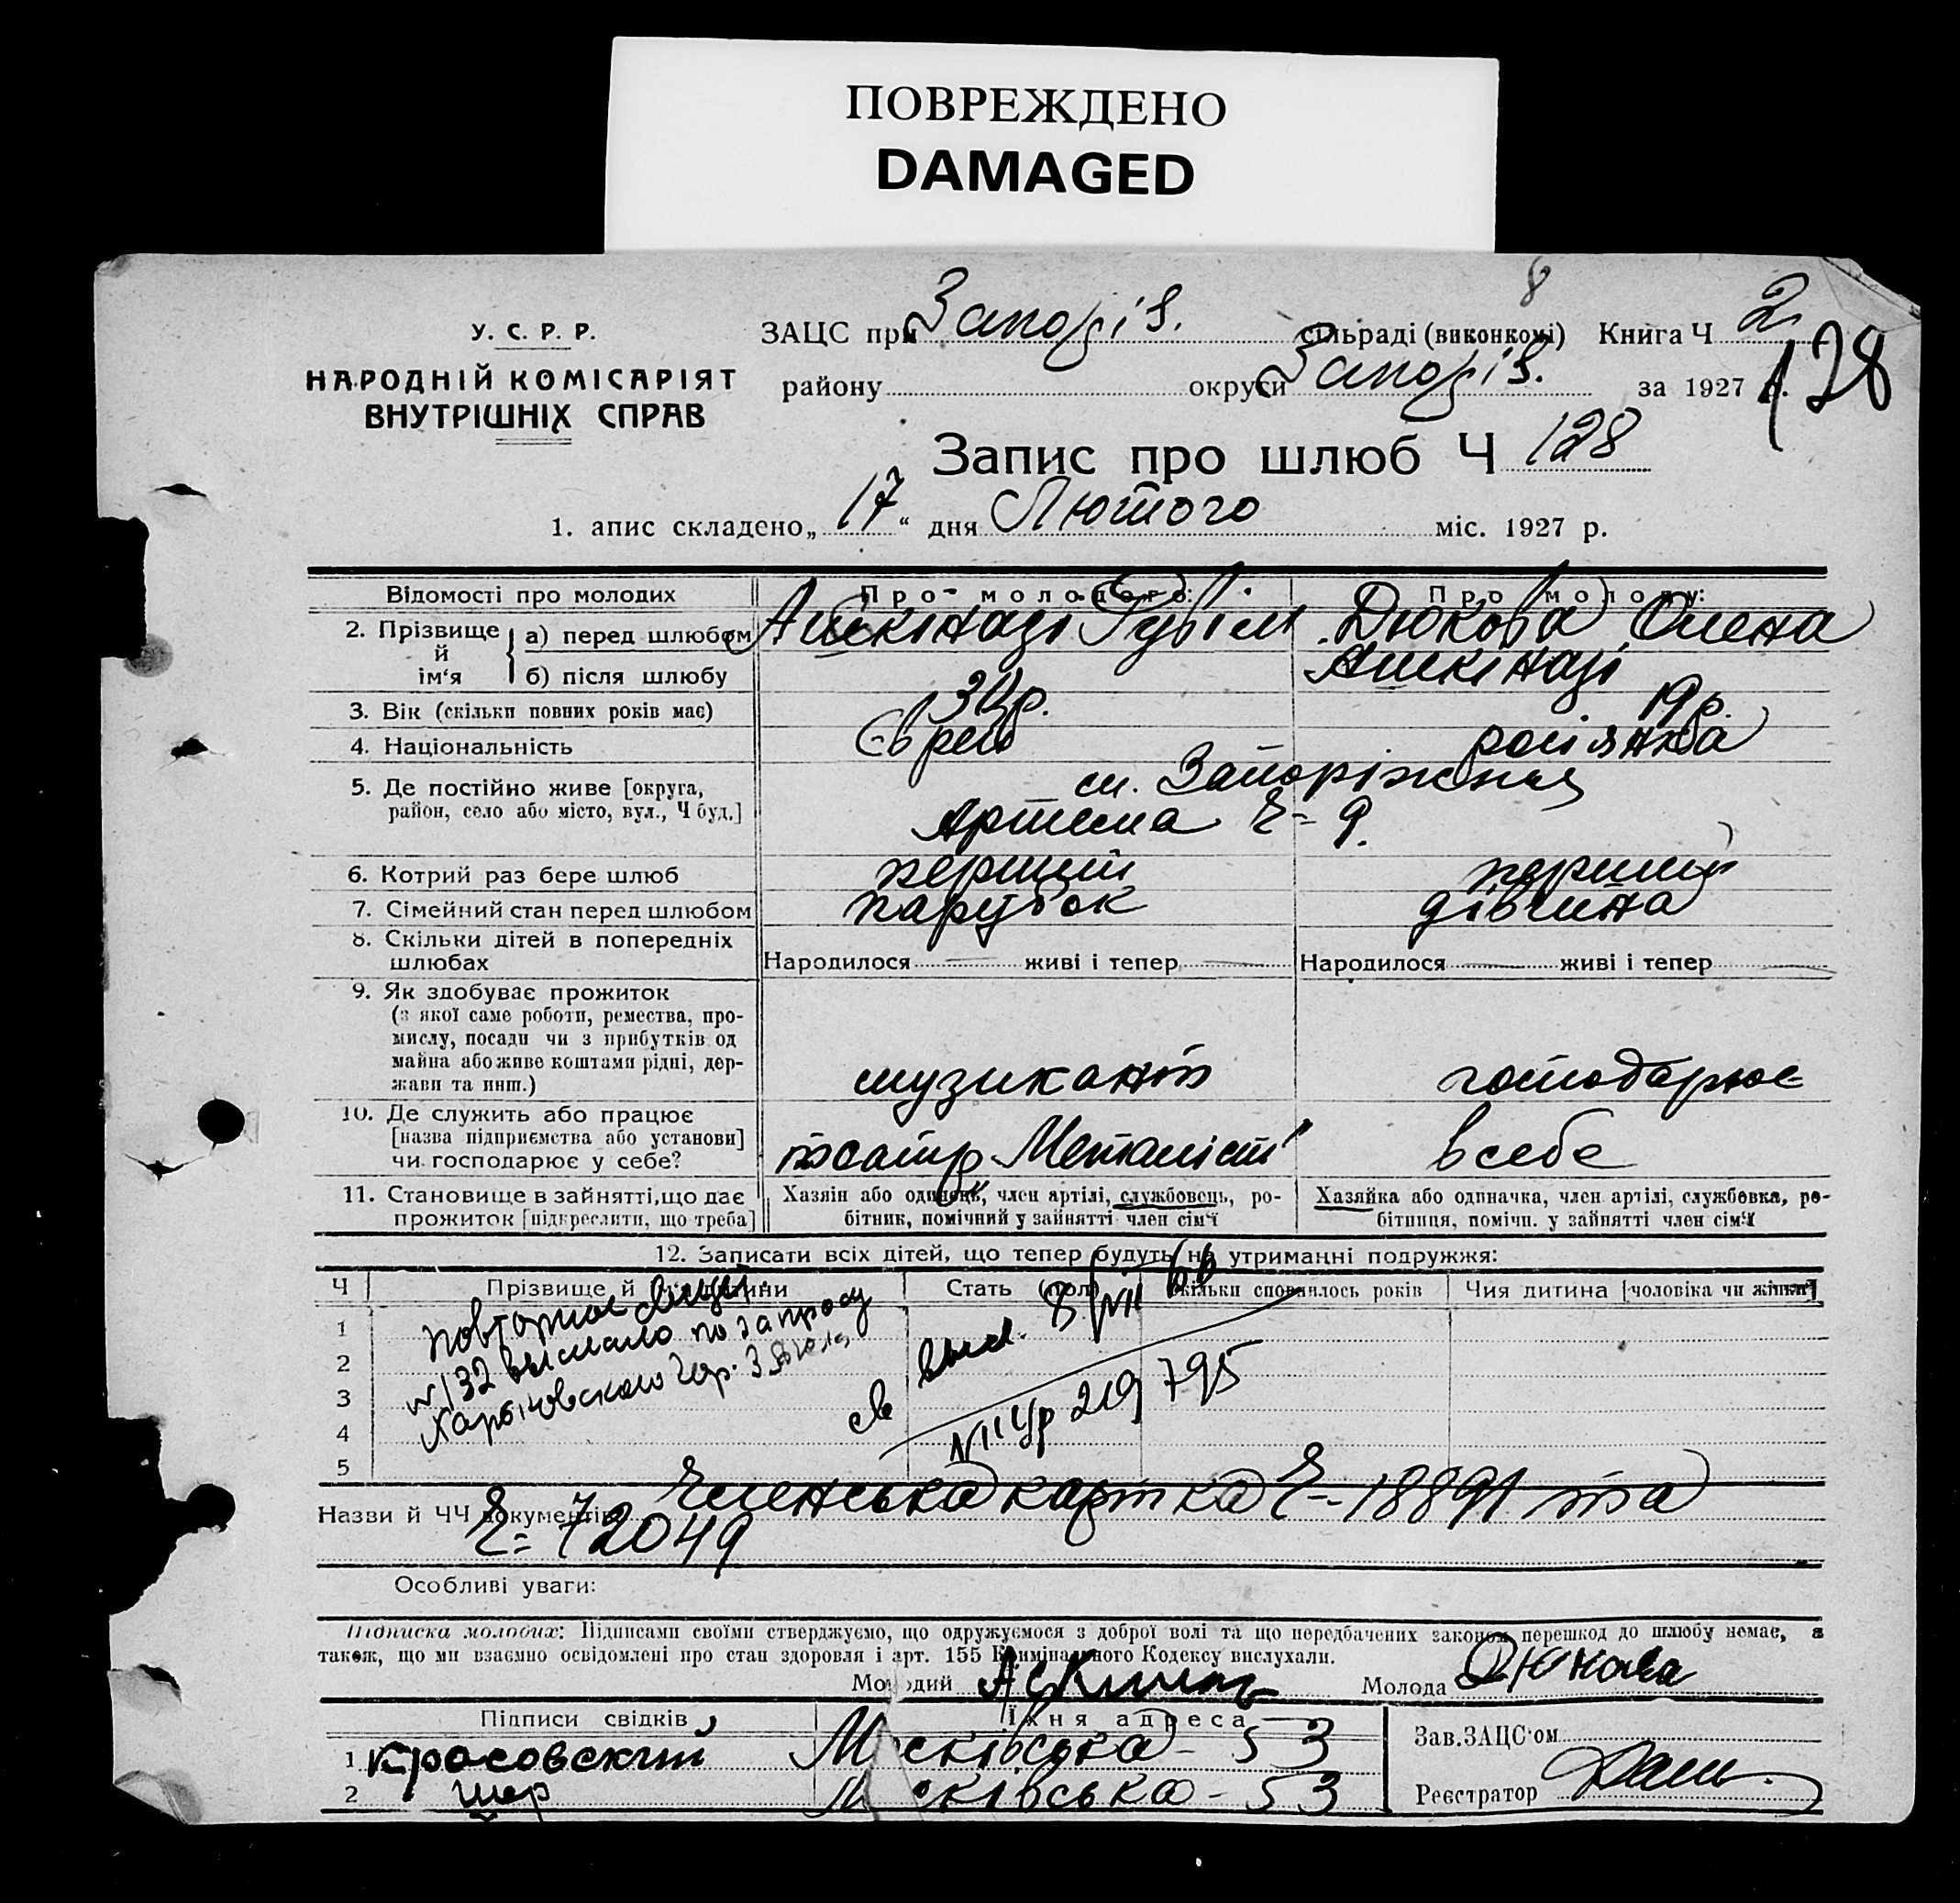 ПОВРЕЖДЕНО
DAMAGED
У. С. Р. Р.
НАРОДНІЙ КОМІСАРІЯТ
ВНУТРІШНІХ СПРАВ
8
ЗАЦС при Запоріз. сільраді (виконкомі) Книга Ч 2
району округи Запоріз. за 1927 р. 128
Запис про шлюб Ч 128
1. апис складено „ 17 “ дня Лютого міс. 1927 р.
Відомості про молодих Про молодого: Про молоду:
2. Прізвище й ім‘я а) перед шлюбом Ашкіназі Рувім Дюкова Олена
б) після шлюбу Ашкіназі
3. Вік (скільки повних років має) р. 19 р.
4. Національність Єврей росіянка
5. Де постійно живе [округа, м. Запоріжжя
район, село або місто, вул., Ч буд.] Артема Ч= 9.
6. Котрий раз бере шлюб перший перший
7. Сімейний стан перед шлюбом парубок дівчина
8. Скільки дітей в попередніх
шлюбах Народилося — живі і тепер — Народилося — живі і тепер —
9. Як здобуває прожиток
(з якої саме роботи, ремества, про-
мислу, посади чи з прибутків од
майна або живе коштами рідні, дер-
жави та инш.) музикант господарює
10. Де служить або працює
[назва підприємства або установи]
чи господарює у себе? театр „Металіст“ в себе
11. Становище в зайнятті, що дає Хазяін або одинець, член артілі, службовець, ро- Хазяйка або одиначка, член артілі, службовка, ро-
прожиток [підкреслити, що треба] бітник, помічний у зайнятті член сім‘ї бітниця, помічн. у зайнятті член сім‘ї
12. Записати всіх дітей, що тепер будуть на утриманні подружжя:
Ч Прізвище й дитини Стать (пол) Скільки сповнилось років Чия дитина [чоловіка чи жінки]
1
2
3
4
5
повторное
№ 132 выслано по запросу
Харьковского гор.
св выд. 8/VII 66
№ II УР 219795
Назви й ЧЧ документів Членська картка Ч= 18891 та
Ч= 72049
Особливі уваги:
Підписка молодих: Підписами своїми стверджуємо, що одружуємося з доброї волі та що передбачених законом перешкод до шлюбу немає, а
також, що ми взаємно освідомлені про стан здоровля і арт. 155 Кримінального Кодексу вислухали.
Молодий Молода Дюкова
Підписи свідків Їхня адреса Зав. ЗАЦС‘ом
1 Красовский Московська - 53
2 Шер Московська - 53 Реєстратор